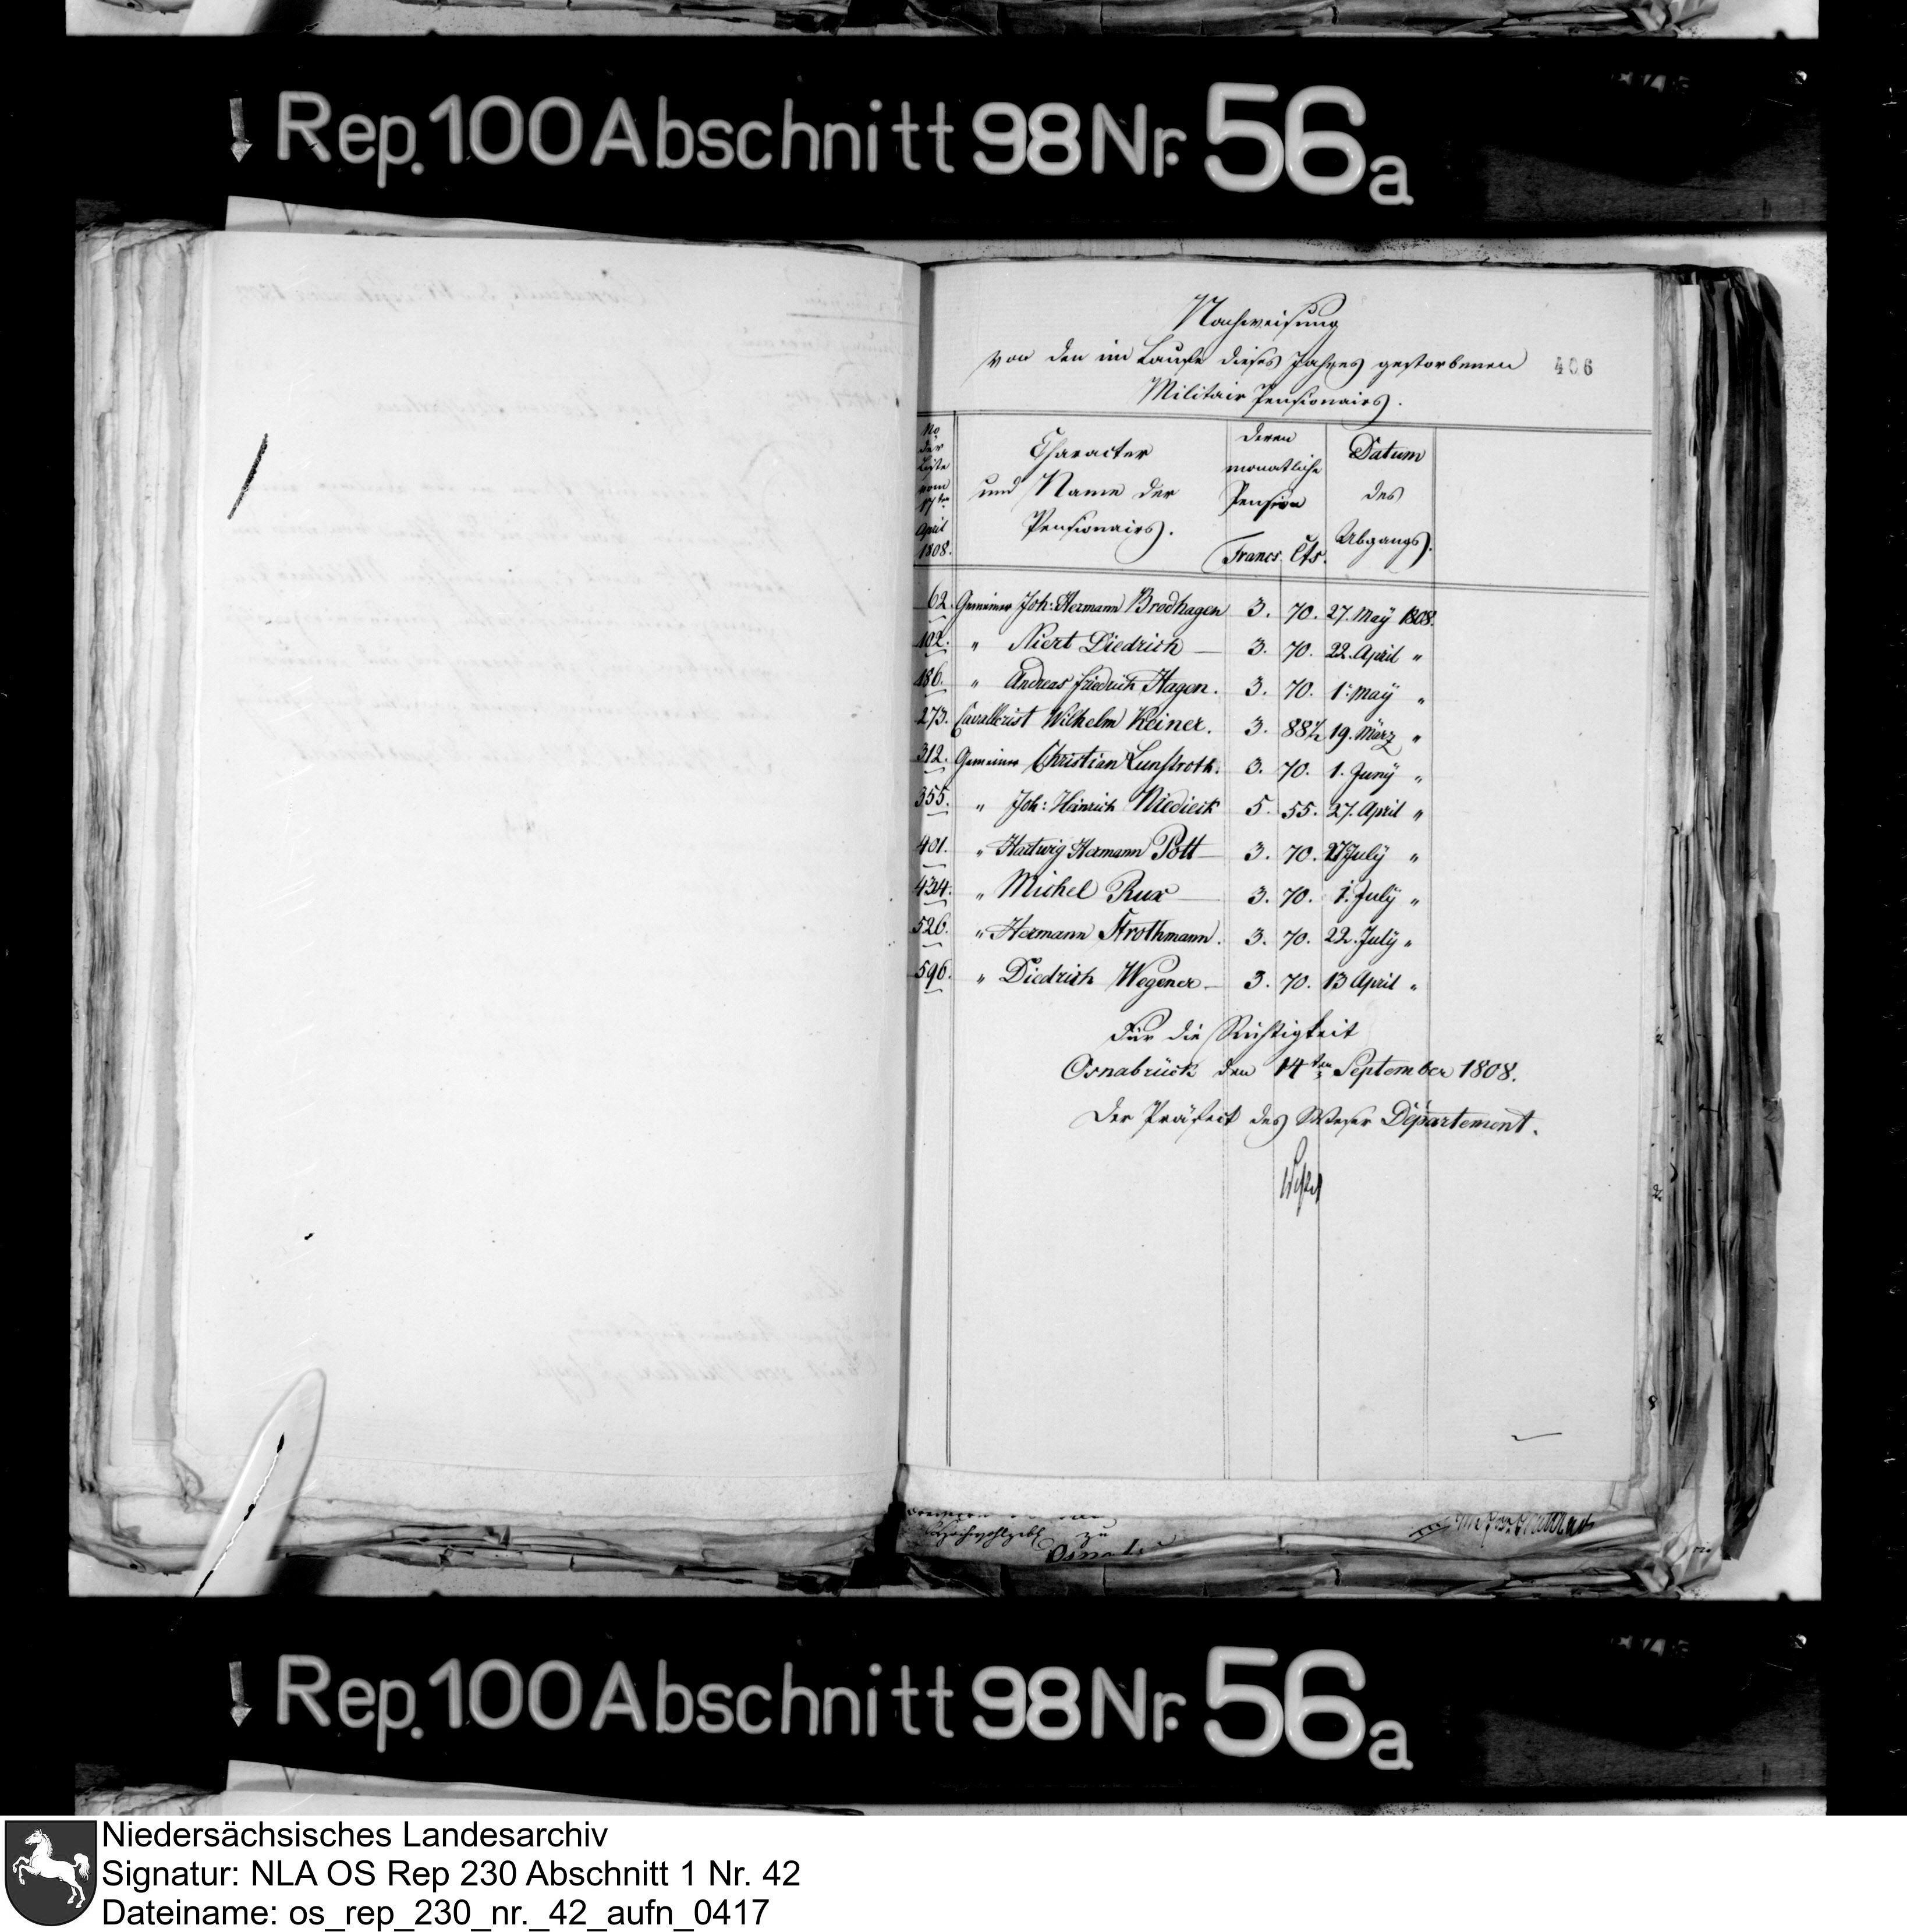 Rep. 100 Abschnitt 98 Nr. 56a
Nachweisung
von den im Laufe dieses Jahres gestorbenen
406
Militair Pensionairs.
No der Liste vom 17ten April 1808.
Character und Name der Pensionairs.
deren monatliche Pension
Francs. Cts.
Datum des Abgangs.
62. Gemeiner Joh: Hermann Brodhagen 3. 70. 27. May 1808.
102. " Niert Diedrich — 3. 70. 22. April "
186. " Andreas Friedrich Hagen. 3. 70. 1. May "
273. Cavallerist Wilhelm Keiner. 3. 88½ 19. März "
312. Gemeiner Christian Lunstroth. 3. 70. 1. Juny "
355. " Joh: Heinrich Niedieck 5. 55. 27. April "
401. " Hartwig Hermann Pott — 3. 70. 27 July "
434. " Michel Rux — 3. 70. 1. July "
526. " Hermann Strothmann. 3. 70. 22. July "
596. " Diedrich Wegener — 3. 70. 13 April "
Für die Richtigkeit
Osnabrück den 14ten September 1808.
Der Präfect des Weser Département.
Rep. 100 Abschnitt 98 Nr. 56a
Niedersächsisches Landesarchiv
Signatur: NLA OS Rep 230 Abschnitt 1 Nr. 42
Dateiname: os_rep_230_nr._42_aufn_0417